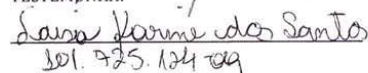 Laisa Karine dos Santos
101.725.124-09